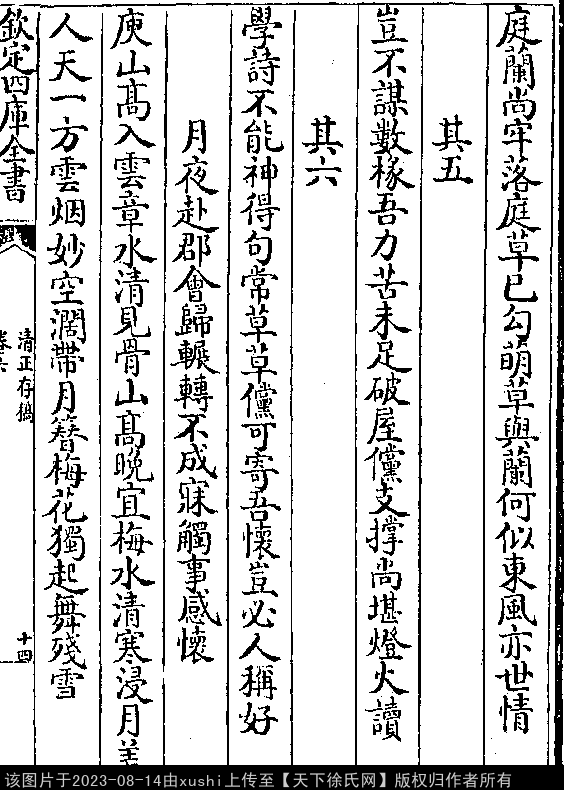 庭蘭尚牢落庭草已勾萌草與蘭何似東風亦世情
其五
豈不謀數椽吾力苦未足破屋儻支撑尚堪燈火讀
其六
學詩不能神得句常草草儻可寄吾懷豈必人稱好
月夜赴郡會歸輾轉不成寐觸事感懷
庾山髙入雲章水清見骨山髙晩宜梅水清寒浸月美
人天一方雲烟妙空濶帶月簪梅花獨起舞殘雪
欽定四庫全書
清正存稿
卷六
十四
该图片于2023-08-14由xushi上传至【天下徐氏网】版权归作者所有